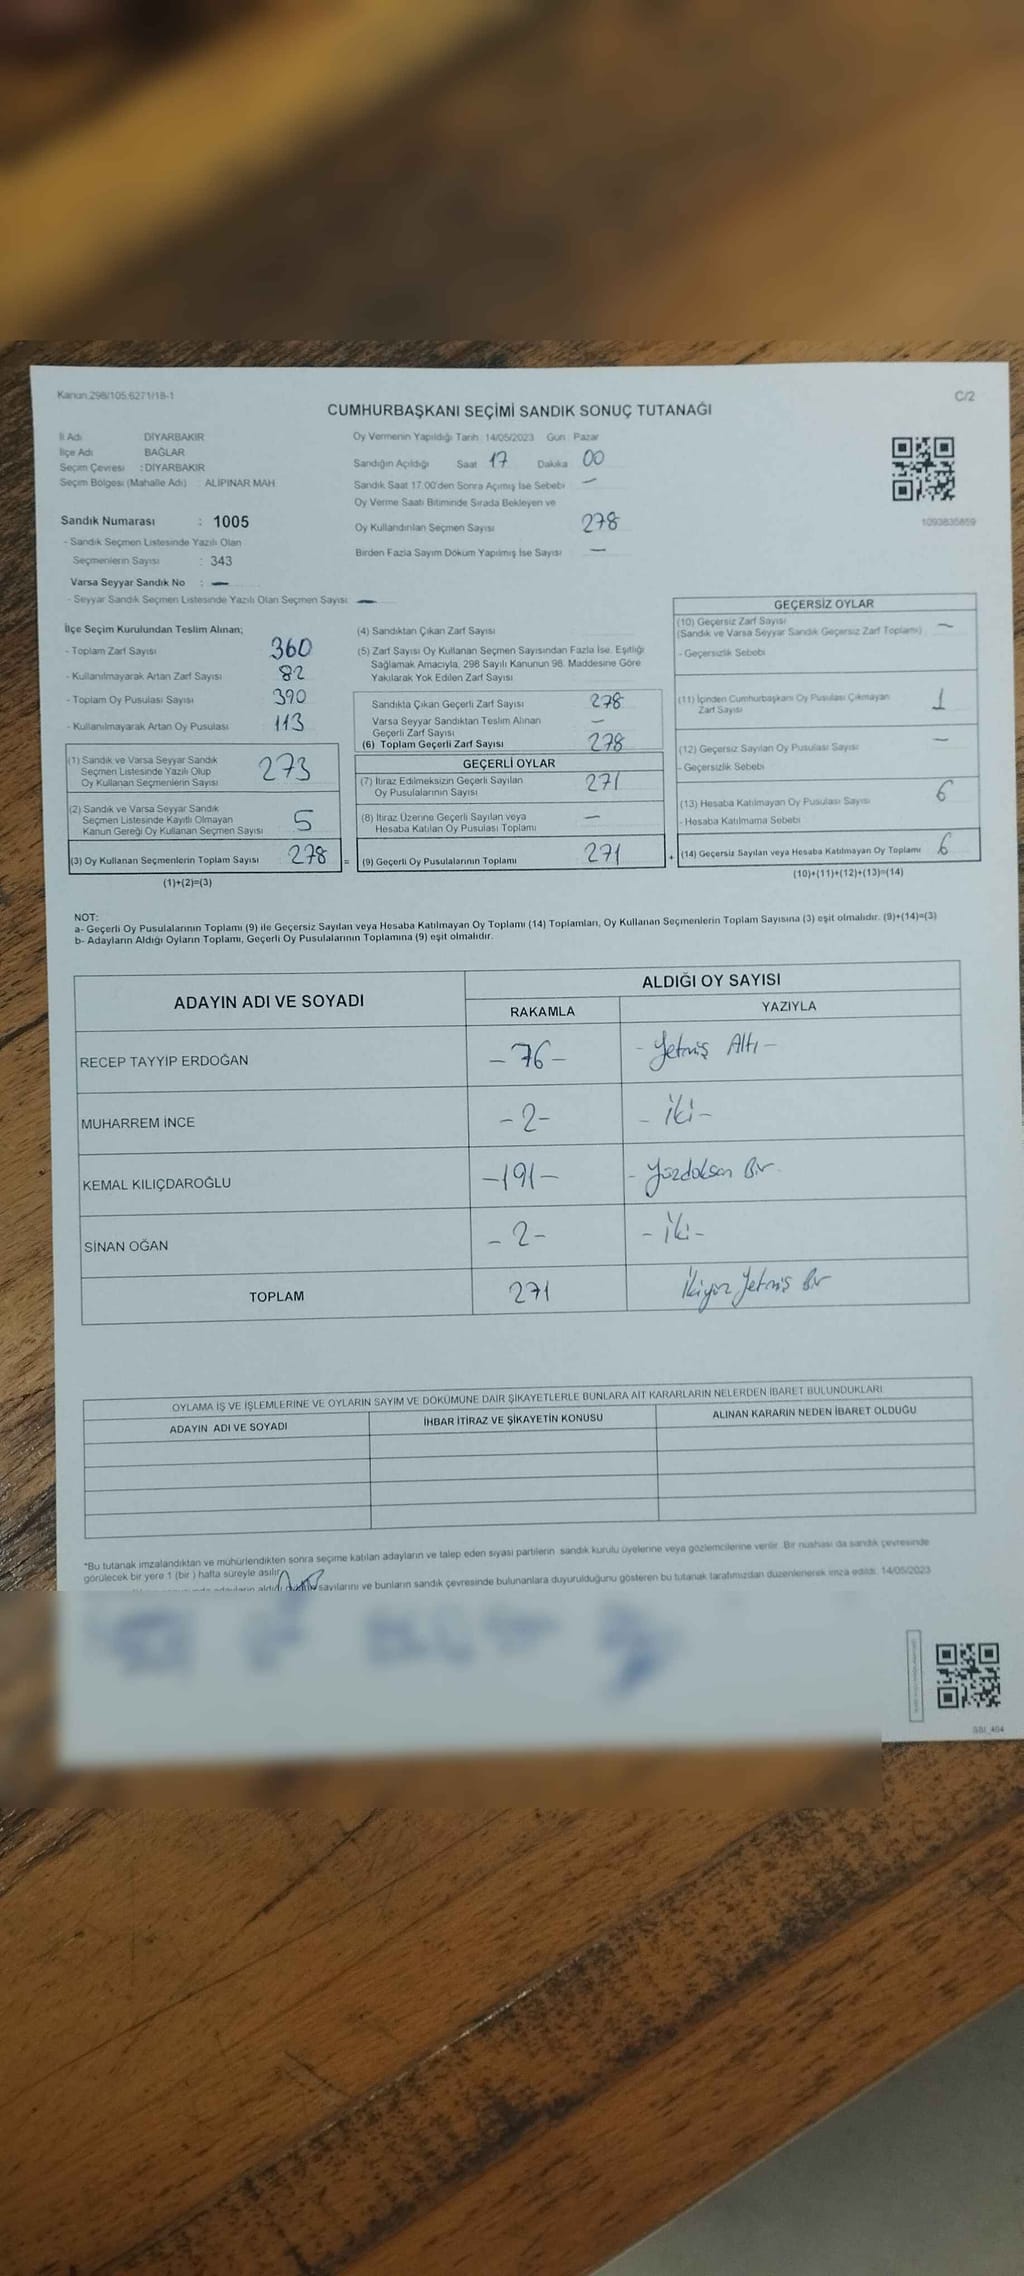 Kanun:298/105,6271/18-1
C/2
CUMHURBAŞKANI SEÇİMİ SANDIK SONUÇ TUTANAĞI
İl Adı DİYARBAKIR
İlçe Adı BAĞLAR
Seçim Çevresi : DİYARBAKIR
Seçim Bölgesi (Mahalle Adı) : ALİPINAR MAH.
Oy Vermenin Yapıldığı Tarih: 14/05/2023 Gün : Pazar
Sandığın Açıldığı Saat 17 Dakika 00
Sandık Saat 17:00'den Sonra Açımış İse Sebebi —
Oy Verme Saati Bitiminde Sırada Bekleyen ve
Oy Kullandırılan Seçmen Sayısı 278
Birden Fazla Sayım Döküm Yapılmış İse Sayısı —
1093835859
Sandık Numarası : 1005
- Sandık Seçmen Listesinde Yazılı Olan
Seçmenlerin Sayısı : 343
Varsa Seyyar Sandık No : —
- Seyyar Sandık Seçmen Listesinde Yazılı Olan Seçmen Sayısı: —
İlçe Seçim Kurulundan Teslim Alınan;
- Toplam Zarf Sayısı 360
- Kullanılmayarak Artan Zarf Sayısı 82
- Toplam Oy Pusulası Sayısı 390
- Kullanılmayarak Artan Oy Pusulası 113
(1) Sandık ve Varsa Seyyar Sandık
Seçmen Listesinde Yazılı Olup
Oy Kullanan Seçmenlerin Sayısı 273
(2) Sandık ve Varsa Seyyar Sandık
Seçmen Listesinde Kayıtlı Olmayan
Kanun Gereği Oy Kullanan Seçmen Sayısı 5
(3) Oy Kullanan Seçmenlerin Toplam Sayısı 278 =
(1)+(2)=(3)
(4) Sandıktan Çıkan Zarf Sayısı
(5) Zarf Sayısı Oy Kullanan Seçmen Sayısından Fazla İse, Eşitliği
Sağlamak Amacıyla, 298 Sayılı Kanunun 98. Maddesine Göre
Yakılarak Yok Edilen Zarf Sayısı
Sandıkta Çıkan Geçerli Zarf Sayısı 278
Varsa Seyyar Sandıktan Teslim Alınan
Geçerli Zarf Sayısı —
(6) Toplam Geçerli Zarf Sayısı 278
GEÇERLİ OYLAR
(7) İtiraz Edilmeksizin Geçerli Sayılan
Oy Pusulalarının Sayısı 271
(8) İtiraz Üzerine Geçerli Sayılan veya
Hesaba Katılan Oy Pusulası Toplamı —
(9) Geçerli Oy Pusulalarının Toplamı 271 +
GEÇERSİZ OYLAR
(10) Geçersiz Zarf Sayısı
(Sandık ve Varsa Seyyar Sandık Geçersiz Zarf Toplamı) —
- Geçersizlik Sebebi
(11) İçinden Cumhurbaşkanı Oy Pusulası Çıkmayan
Zarf Sayısı 1
(12) Geçersiz Sayılan Oy Pusulası Sayısı —
- Geçersizlik Sebebi
(13) Hesaba Katılmayan Oy Pusulası Sayısı 6
- Hesaba Katılmama Sebebi
(14) Geçersiz Sayılan veya Hesaba Katılmayan Oy Toplamı 6
(10)+(11)+(12)+(13)=(14)
NOT:
a- Geçerli Oy Pusulalarının Toplamı (9) ile Geçersiz Sayılan veya Hesaba Katılmayan Oy Toplamı (14) Toplamları, Oy Kullanan Seçmenlerin Toplam Sayısına (3) eşit olmalıdır. (9)+(14)=(3)
b- Adayların Aldığı Oyların Toplamı, Geçerli Oy Pusulalarının Toplamına (9) eşit olmalıdır.
ADAYIN ADI VE SOYADI
ALDIĞI OY SAYISI
RAKAMLA YAZIYLA
RECEP TAYYİP ERDOĞAN -76- - Yetmiş Altı -
MUHARREM İNCE -2- - İki -
KEMAL KILIÇDAROĞLU -191- - Yüzdoksan Bir -
SİNAN OĞAN -2- - İki -
TOPLAM 271 İkiyüz Yetmiş Bir
OYLAMA İŞ VE İŞLEMLERİNE VE OYLARIN SAYIM VE DÖKÜMÜNE DAİR ŞİKAYETLERLE BUNLARA AİT KARARLARIN NELERDEN İBARET BULUNDUKLARI
ADAYIN ADI VE SOYADI İHBAR İTİRAZ VE ŞİKAYETİN KONUSU ALINAN KARARIN NEDEN İBARET OLDUĞU
*Bu tutanak imzalandıktan ve mühürlendikten sonra seçime katılan adayların ve talep eden siyasi partilerin sandık kurulu üyelerine veya gözlemcilerine verilir. Bir nüshası da sandık çevresinde
görülecek bir yere 1 (bir) hafta süreyle asılır.
adayların aldığı sayılarını ve bunların sandık çevresinde bulunanlara duyurulduğunu gösteren bu tutanak tarafımızdan düzenlenerek imza edildi. 14/05/2023